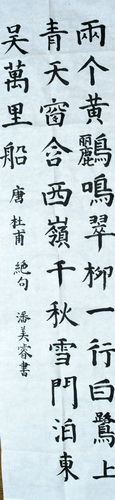 兩个黃鸝鳴翠柳一行白鷺上
青天窗含西嶺千秋雪門泊東
吳萬里船 唐 杜甫 絕句 潘美睿書